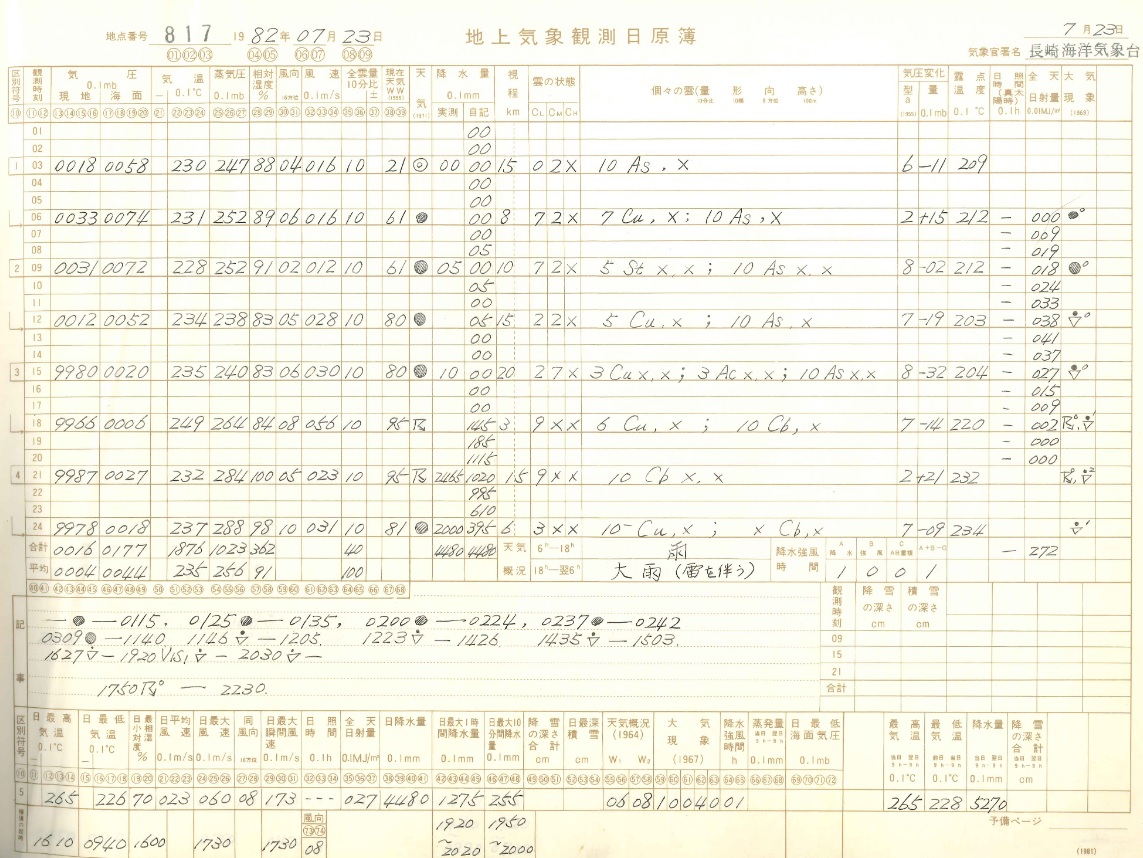 地点番号 817 1982年07月23日 地上気象観測日原簿 7月23日
気象官署名 長崎海洋気象台
区別符号 観測時刻 気圧 0.1mb 現地 海面 気温 0.1℃ 蒸気圧 0.1mb 相対湿度 % 風向 風速 0.1m/s 全雲量 10分比 現在天気 WW 天気 降水量 0.1mm 実測 自記 視程 km 雲の状態 CL CM CH 個々の雲(量 形 向 高さ) 気圧変化 型 a 量 0.1mb 露点温度 0.1℃ 日照時間(真太陽時) 0.1h 全天日射量 0.01MJ/m² 大気現象
01 00
02 00
1 03 0018 0058 230 247 88 04 016 10 21 ◎ 00 00 15 0 2 x 10 As, x 6 -11 209
04 00
05 00
06 0033 0074 231 252 89 06 016 10 61 ● 00 8 7 2 x 7 Cu, x ; 10 As, x 2 +15 212 - 000 ●°
07 00 - 009
08 05 - 019
2 09 0031 0072 228 252 91 02 012 10 61 ● 05 00 10 7 2 x 5 St x, x ; 10 As x, x 8 -02 212 - 018 ●°
10 05 - 024
11 00 - 033
12 0012 0052 234 238 83 05 028 10 80 ● 05 15 2 2 x 5 Cu, x ; 10 As, x 7 -19 203 - 038
13 00 - 041
14 00 - 037
3 15 9980 0020 235 240 83 06 030 10 80 ● 10 00 20 2 7 x 3 Cu x, x ; 3 Ac x, x ; 10 As x, x 8 -32 204 - 027
16 00 - 015
17 00 - 009
18 9966 0006 249 264 84 08 056 10 95 145 3 9 x x 6 Cu, x ; 10 Cb, x 7 -14 220 - 002
19 185 - 000
20 1115 - 000
4 21 9987 0027 232 284 100 05 023 10 95 2465 1020 15 9 x x 10 Cb x, x 2 +21 232
22 995
23 610
24 9978 0018 237 288 98 10 031 10 81 ● 2000 395 6 3 x x 10⁻ Cu, x ; x Cb, x 7 -09 234
合計 0016 0177 1876 1023 362 40 4480 4480 天気 6ʰ-18ʰ 雨 降水強風 A 降水 B 強風 C AB重複 A+B-C - 272
平均 0004 0044 235 256 91 100 概況 18ʰ-翌6ʰ 大雨(雷を伴う) 時間 1 0 0 1
観測時刻 降雪の深さ cm 積雪の深さ cm
09
15
21
合計
記事
—●—0115. 0125●—0135, 0200●—0224, 0237●—0242
0309●—1140, 1146—1205. 1223—1426. 1435—1503.
1627—1920 VIS, —2030—
1750—2230.
区別符号 日最高気温 0.1℃ 日最低気温 0.1℃ 日最小相対湿度 % 日平均風速 0.1m/s 日最大風速 0.1m/s 同風向 日最大瞬間風速 0.1m/s 日照時間 0.1h 全天日射量 0.1MJ/m² 日降水量 0.1mm 日最大1時間降水量 0.1mm 日最大10分間降水量 0.1mm 降雪合計 cm 日最深積雪 cm 天気概況 (1964) W₁ W₂ 大気現象 (1967) 降水強風時間 h 蒸発量 0.1mm 日最低海面気圧 0.1mb 最高気温 0.1℃ 最低気温 0.1℃ 降水量 0.1mm 降雪合計 cm
5 265 226 70 023 060 08 173 --- 027 4480 1275 255 06 08 10 040 01 265 228 5270
1610 0940 1600 1730 1730 風向 08 1920~2020 1950~2000
予備ページ
(1981)